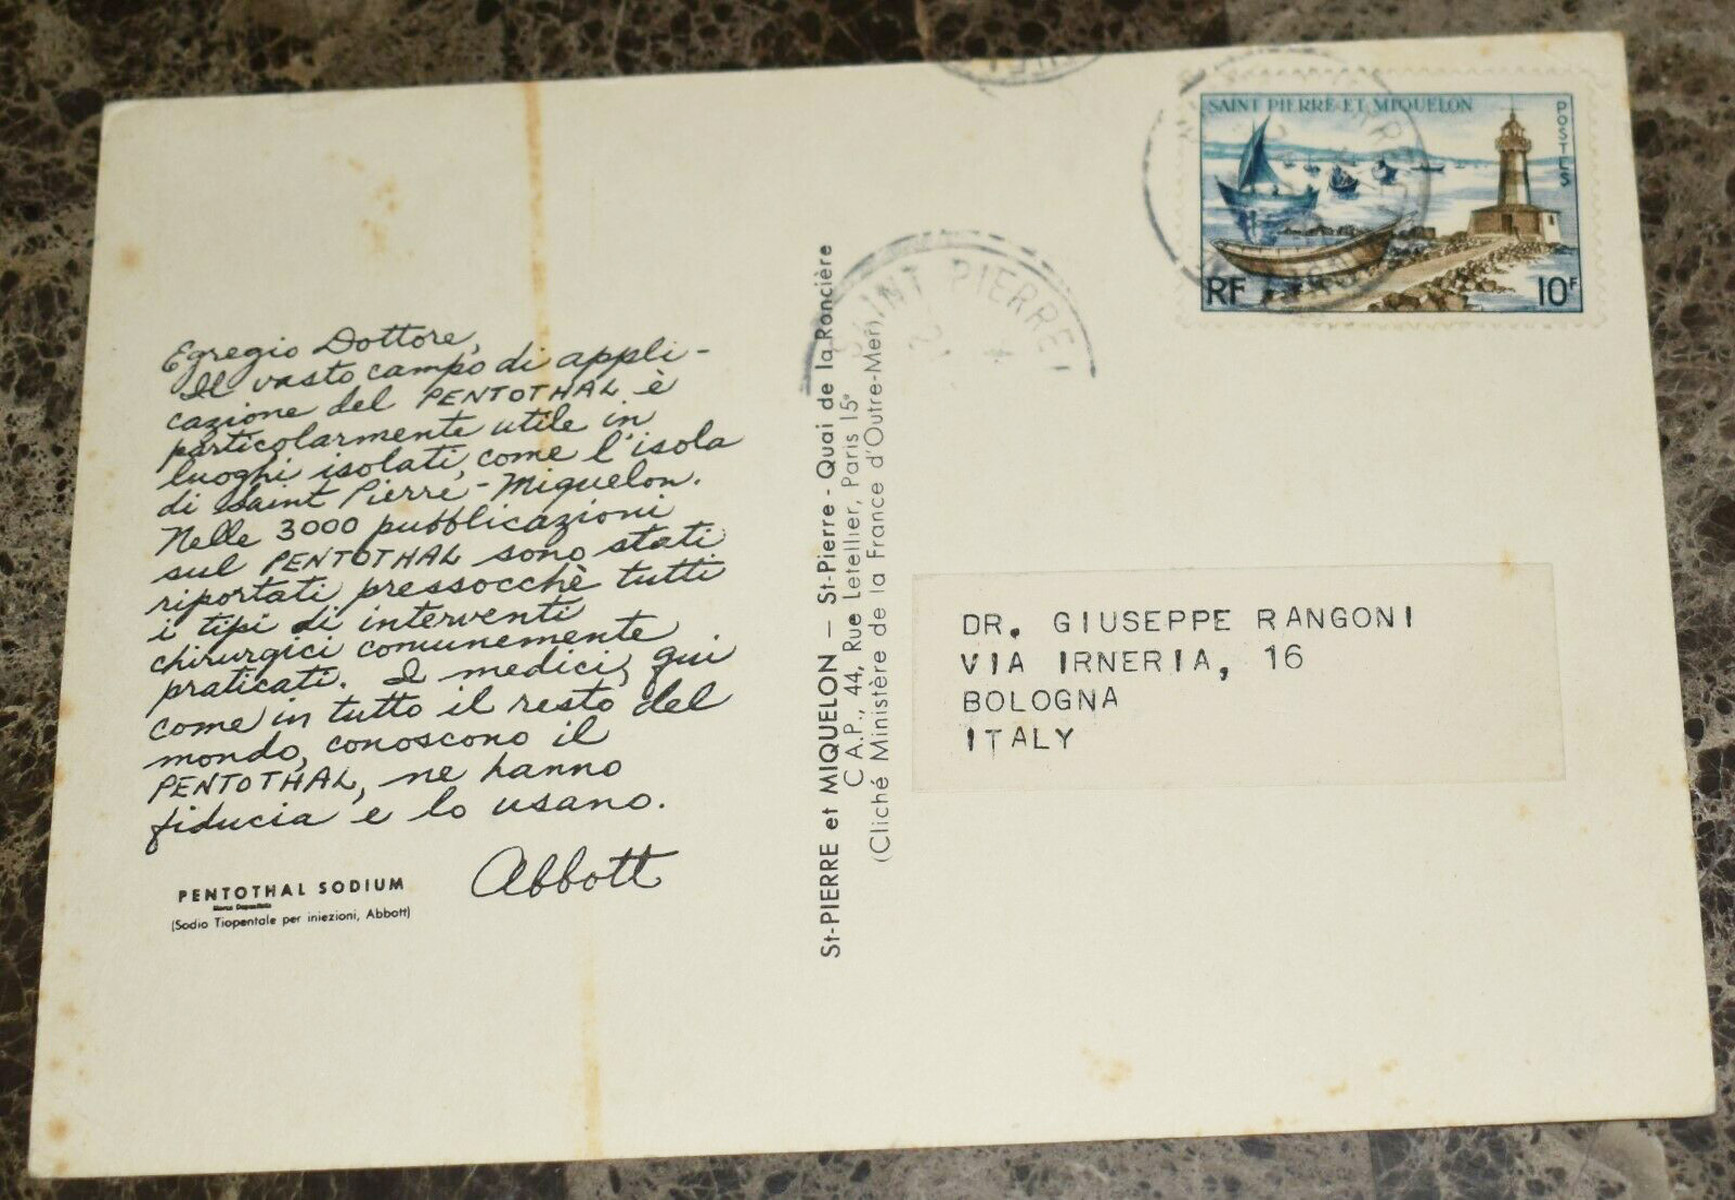 Egregio Dottore,
Il vasto campo di appli-
cazione del PENTOTHAL è
particolarmente utile in
luoghi isolati, come l'isola
di Saint Pierre-Miquelon.
Nelle 3000 pubblicazioni
sul PENTOTHAL sono stati
riportati pressocchè tutti
i tipi di interventi
chirurgici comunemente
praticati. I medici, qui
come in tutto il resto del
mondo, conoscono il
PENTOTHAL, ne hanno
fiducia e lo usano.
Abbott
PENTOTHAL SODIUM
Marca Depositata
(Sodio Tiopentale per iniezioni, Abbott)
St-PIERRE et MIQUELON — St-Pierre - Quai de la Roncière
C.A.P., 44, Rue Letellier, Paris 15e
(Cliché Ministère de la France d'Outre-Mer)
SAINT PIERRE
SAINT PIERRE ET MIQUELON
POSTES
RF
10F
DR. GIUSEPPE RANGONI
VIA IRNERIA, 16
BOLOGNA
ITALY